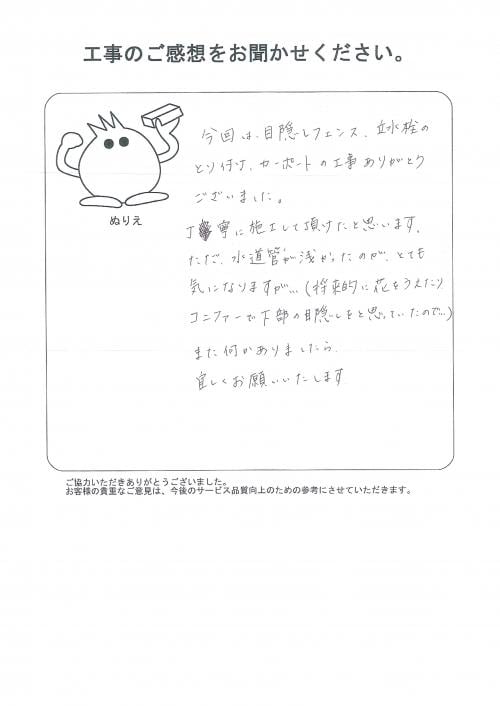 工事のご感想をお聞かせください。
今回は、目隠しフェンス、立水栓の
とり付け、カーポートの工事ありがとう
ございました。
丁寧に施工して頂けたと思います。
ただ、水道管が浅かったのが、とても
気になりますが…(将来的に花をうえたり
コニファーで下部の目隠しをと思っていたので…)
また何かありましたら、
宜しくお願いいたします
ぬりえ
ご協力いただきありがとうございました。
お客様の貴重なご意見は、今後のサービス品質向上のための参考にさせていただきます。